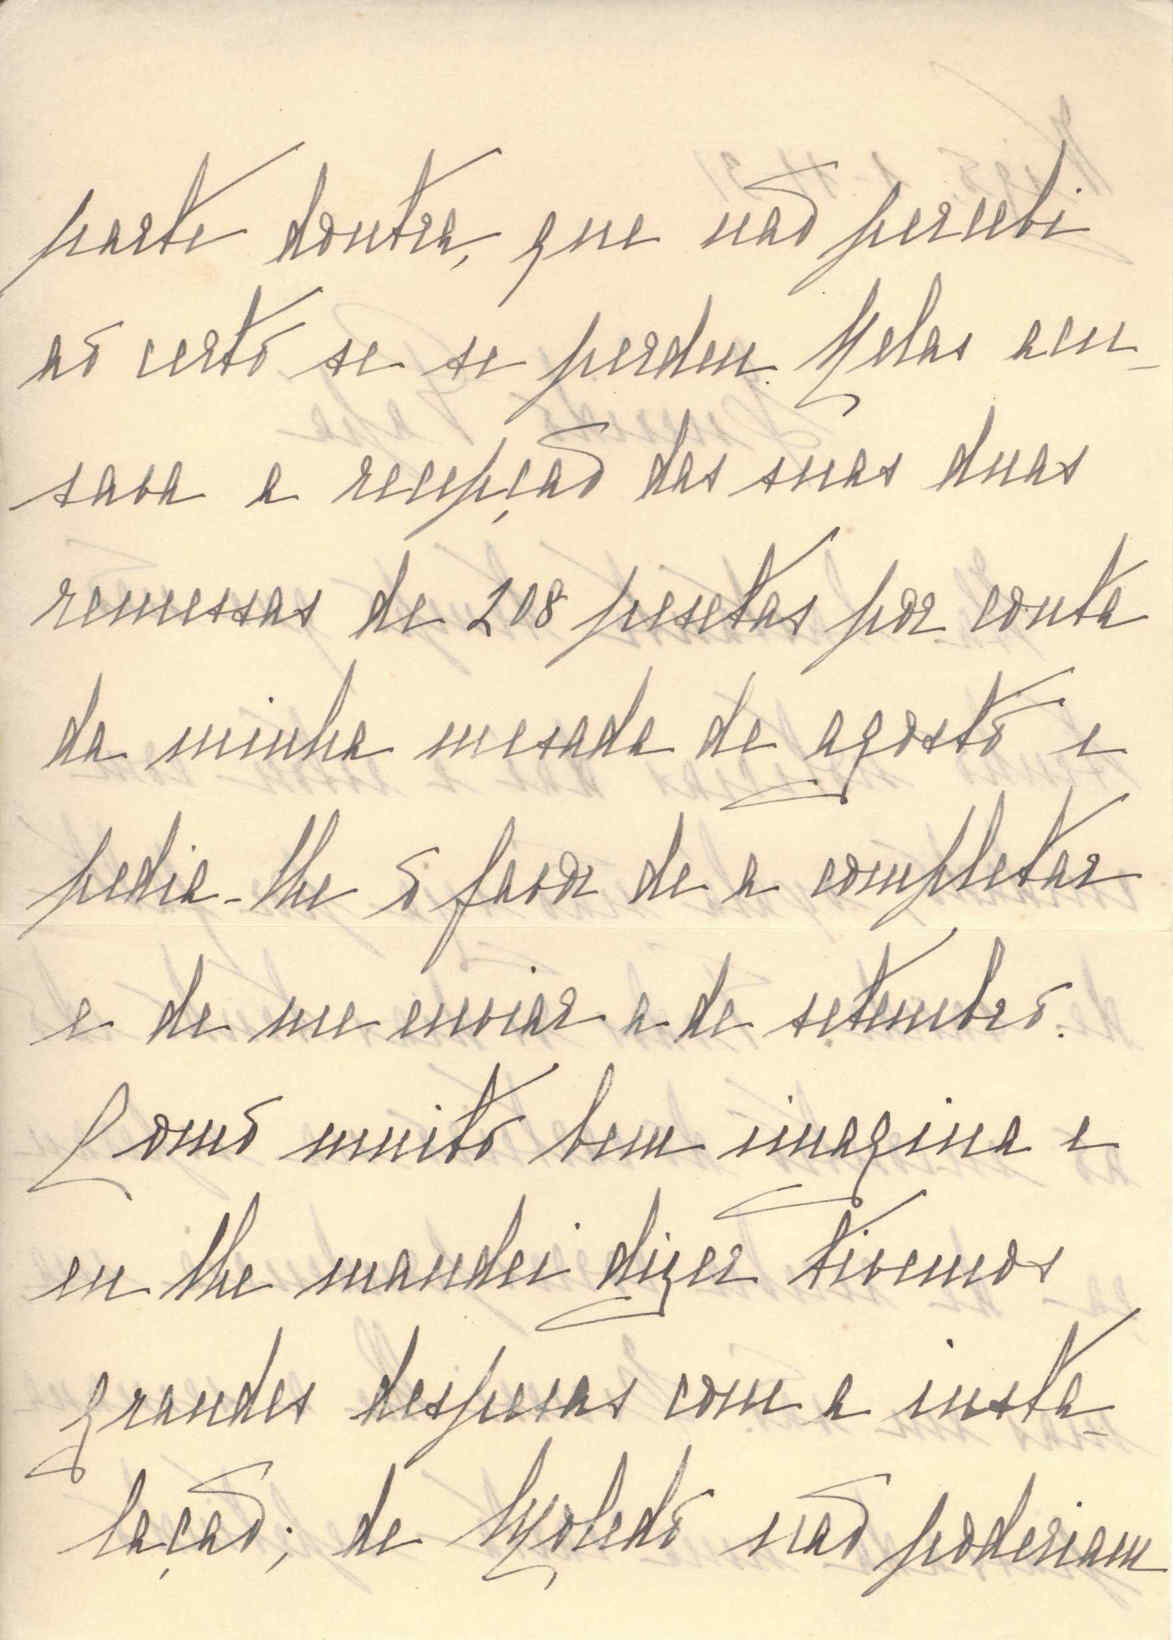 parte doutra, que não percebi
ao certo se se perdeu. Nelas acu-
sava a recepção das suas duas
remessas de 208 pesetas por conta
da minha mesada de agosto e
pedia-lhe o favor de a completar
e de me enviar a de setembro.
Como muito bem imagina e
eu lhe mandei dizer tivemos
grandes despesas com a insta-
lação; de Moledo não poderiam